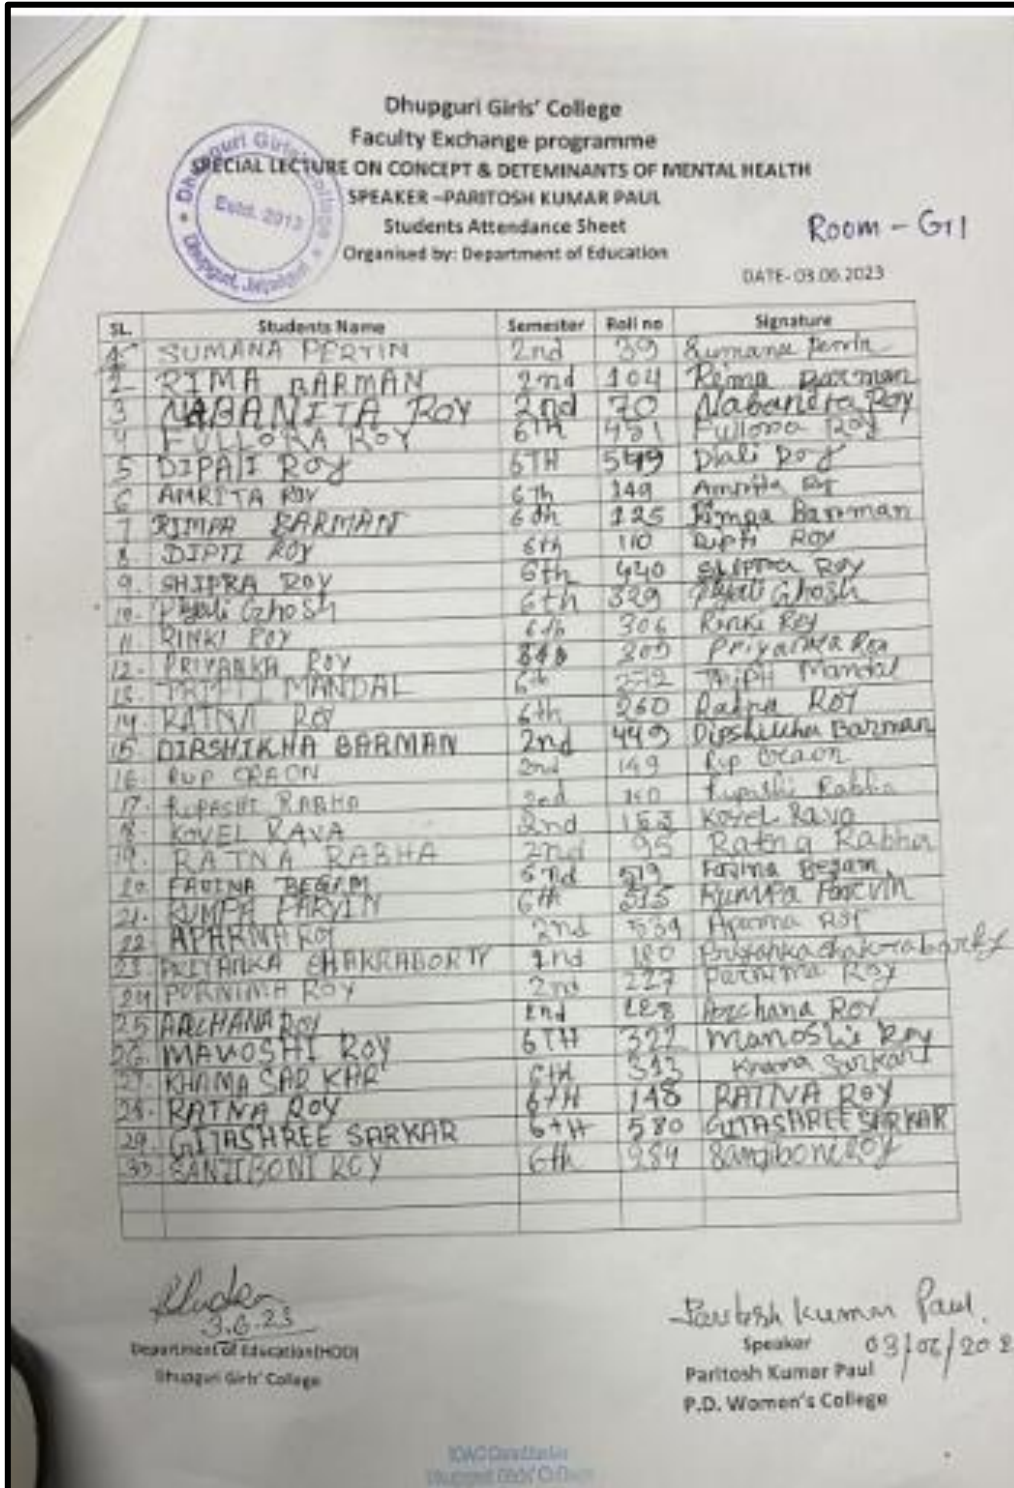 Dhupguri Girls' College
Faculty Exchange programme
SPECIAL LECTURE ON CONCEPT & DETEMINANTS OF MENTAL HEALTH
SPEAKER –PARITOSH KUMAR PAUL
Students Attendance Sheet
Organised by: Department of Education
Dhupguri Girls' College
Estd. 2013
Dhupguri, Jalpaiguri
Room - G11
DATE- 03.06.2023
SL. Students Name Semester Roll no Signature
SUMANA PERVIN 2nd 39 Sumana Pervin
2 RIMA BARMAN 2nd 104 Rima Barman
3 NABANITA ROY 2nd 70 Nabanita Roy
4 FULLORA ROY 6th 481 Fullora Roy
5 DIPALI ROY 6TH 549 Roy
6 AMRITA ROY 6th 149 Amrita Roy
7 RIMPA BARMAN 6th 125 Rimpa Barman
8 DIPTI ROY 6th 110 Dipti Roy
9. SHIPRA ROY 6th 440 Shipra Roy
10. Piyali Ghosh 6th 329 Piyali Ghosh
11 RINKI ROY 6th 306 Rinki Roy
12. PRIYANKA ROY Priyanka Roy
13. TRIPTI MANDAL 6th Tripti Mandal
14. RATNA ROY 6th 260 Ratna Roy
15. DIPSHIKHA BARMAN 2nd 449 Dipshikha Barman
16. RUP ORAON 2nd 149 Rup Oraon
17. RUPASHI RABHA 2nd Rupashi Rabha
18. KOYEL RAVA 2nd 153 Koyel Rava
19. RATNA RABHA 2nd 95 Ratna Rabha
20. BEGAM 519 Begam
21. RUMPA PARVIN 6th 515 Rumpa Parvin
22 APARNA ROY 2nd 539 Aparna Roy
23. PRIYANKA CHAKRABORTY 2nd 180 Priyanka chakraborty
24 PURNIMA ROY 2nd 227 Purnima Roy
25 ARCHANA ROY 2nd 228 Archana Roy
26. MANOSHI ROY 6TH 322 Manoshi Roy
27. KHAMA SARKHAR 6th Khama Sarkar
28. RATNA ROY 6TH 148 RATNA ROY
29. GITASHREE SARKAR 6tH 580 GITASHREE SARKAR
30. SANJIBONI ROY 6th 284 Sanjiboni Roy
3.6.23
Department of Education(HOD)
Dhupguri Girls' College
Paritosh Kumar Paul.
Speaker 03/06/202
Paritosh Kumar Paul
P.D. Women's College
IQAC Coordinator
Dhupguri Girls' College